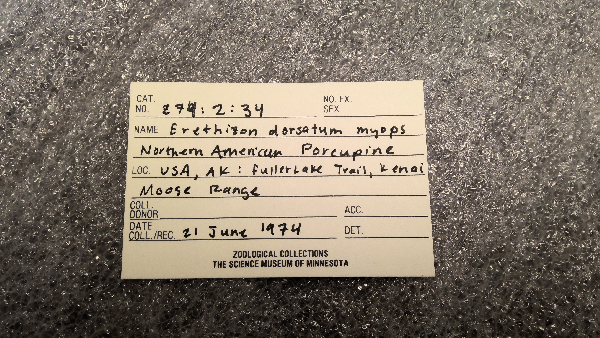 CAT. NO. 274:2:34 NO. EX. SEX
NAME Erethizon dorsatum myops
Northern American Porcupine
LOC. USA, AK: Fuller Lake Trail, Kenai
Moose Range
COLL. DONOR ACC.
DATE COLL./REC. 21 June 1974 DET.
ZOOLOGICAL COLLECTIONS
THE SCIENCE MUSEUM OF MINNESOTA